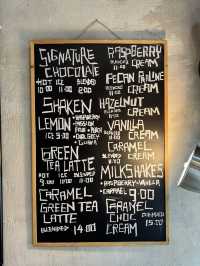 SIGNATURE
CHOCOLATE
HOT ICE BLENDED
10.00 11.00 12.00
SHAKEN
LEMON
RASPBERRY
PASSION
FRUIT
PEACH
EARL GREY
GUAVA
GREEN
TEA LATTE
HOT ICE BLENDED
9.00 10.00 11.00
CARAMEL
GREEN TEA
LATTE
BLENDED 14.00
RASPBERRY
CREAM
PECAN PRALINE
CREAM
HAZELNUT
CREAM
VANILLA
CREAM
CARAMEL
CREAM
MILKSHAKES
RASPBERRY VANILLA
CARAMEL 9.00
CARAMEL
CHOC BLENDED
CREAM 15.00